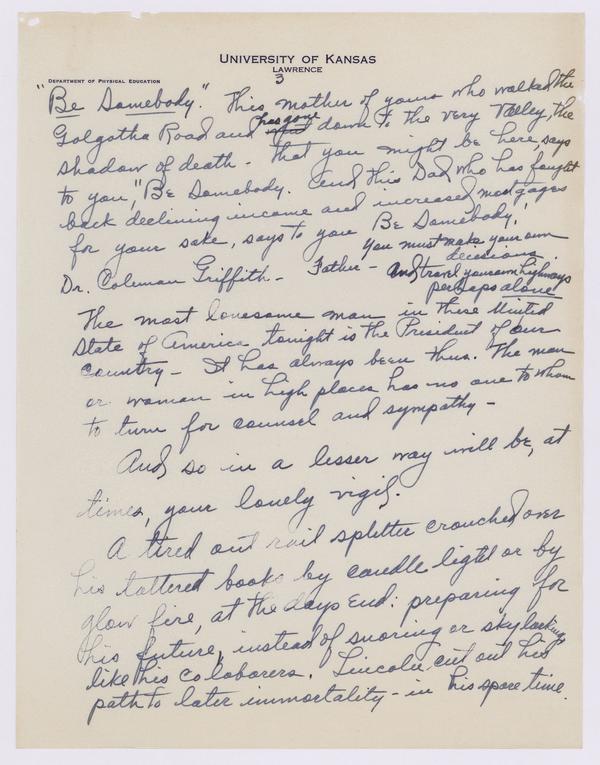 UNIVERSITY OF KANSAS
LAWRENCE
DEPARTMENT OF PHYSICAL EDUCATION
3
"Be Somebody". This mother of yours who walked the
Golgotha Road and has gone down to the very Valley, the
shadow of death - that you might be here, says
to you, "Be Somebody. And this Dad who has fought
back declining income and increased mortgages
for your sake, says to you Be Somebody!
You must make your own
decisions
Dr. Coleman Griffith - Father - And, travel your own highways
perhaps alone
The most lonesome man in these United
State of America tonight is the President of our
Country - It has always been thus. The man
or woman in high places has no one to whom
to turn for counsel and sympathy -
And, so in a lesser way will be, at
times, your lonely vigil.
A tired out rail splitter crouched over
his tattered books by candle light or by
glow fire, at the days end: preparing for
his future, instead of snoring or skylarking
like his colaborers. Lincoln cut out his
path to later immortality - in his spare time.